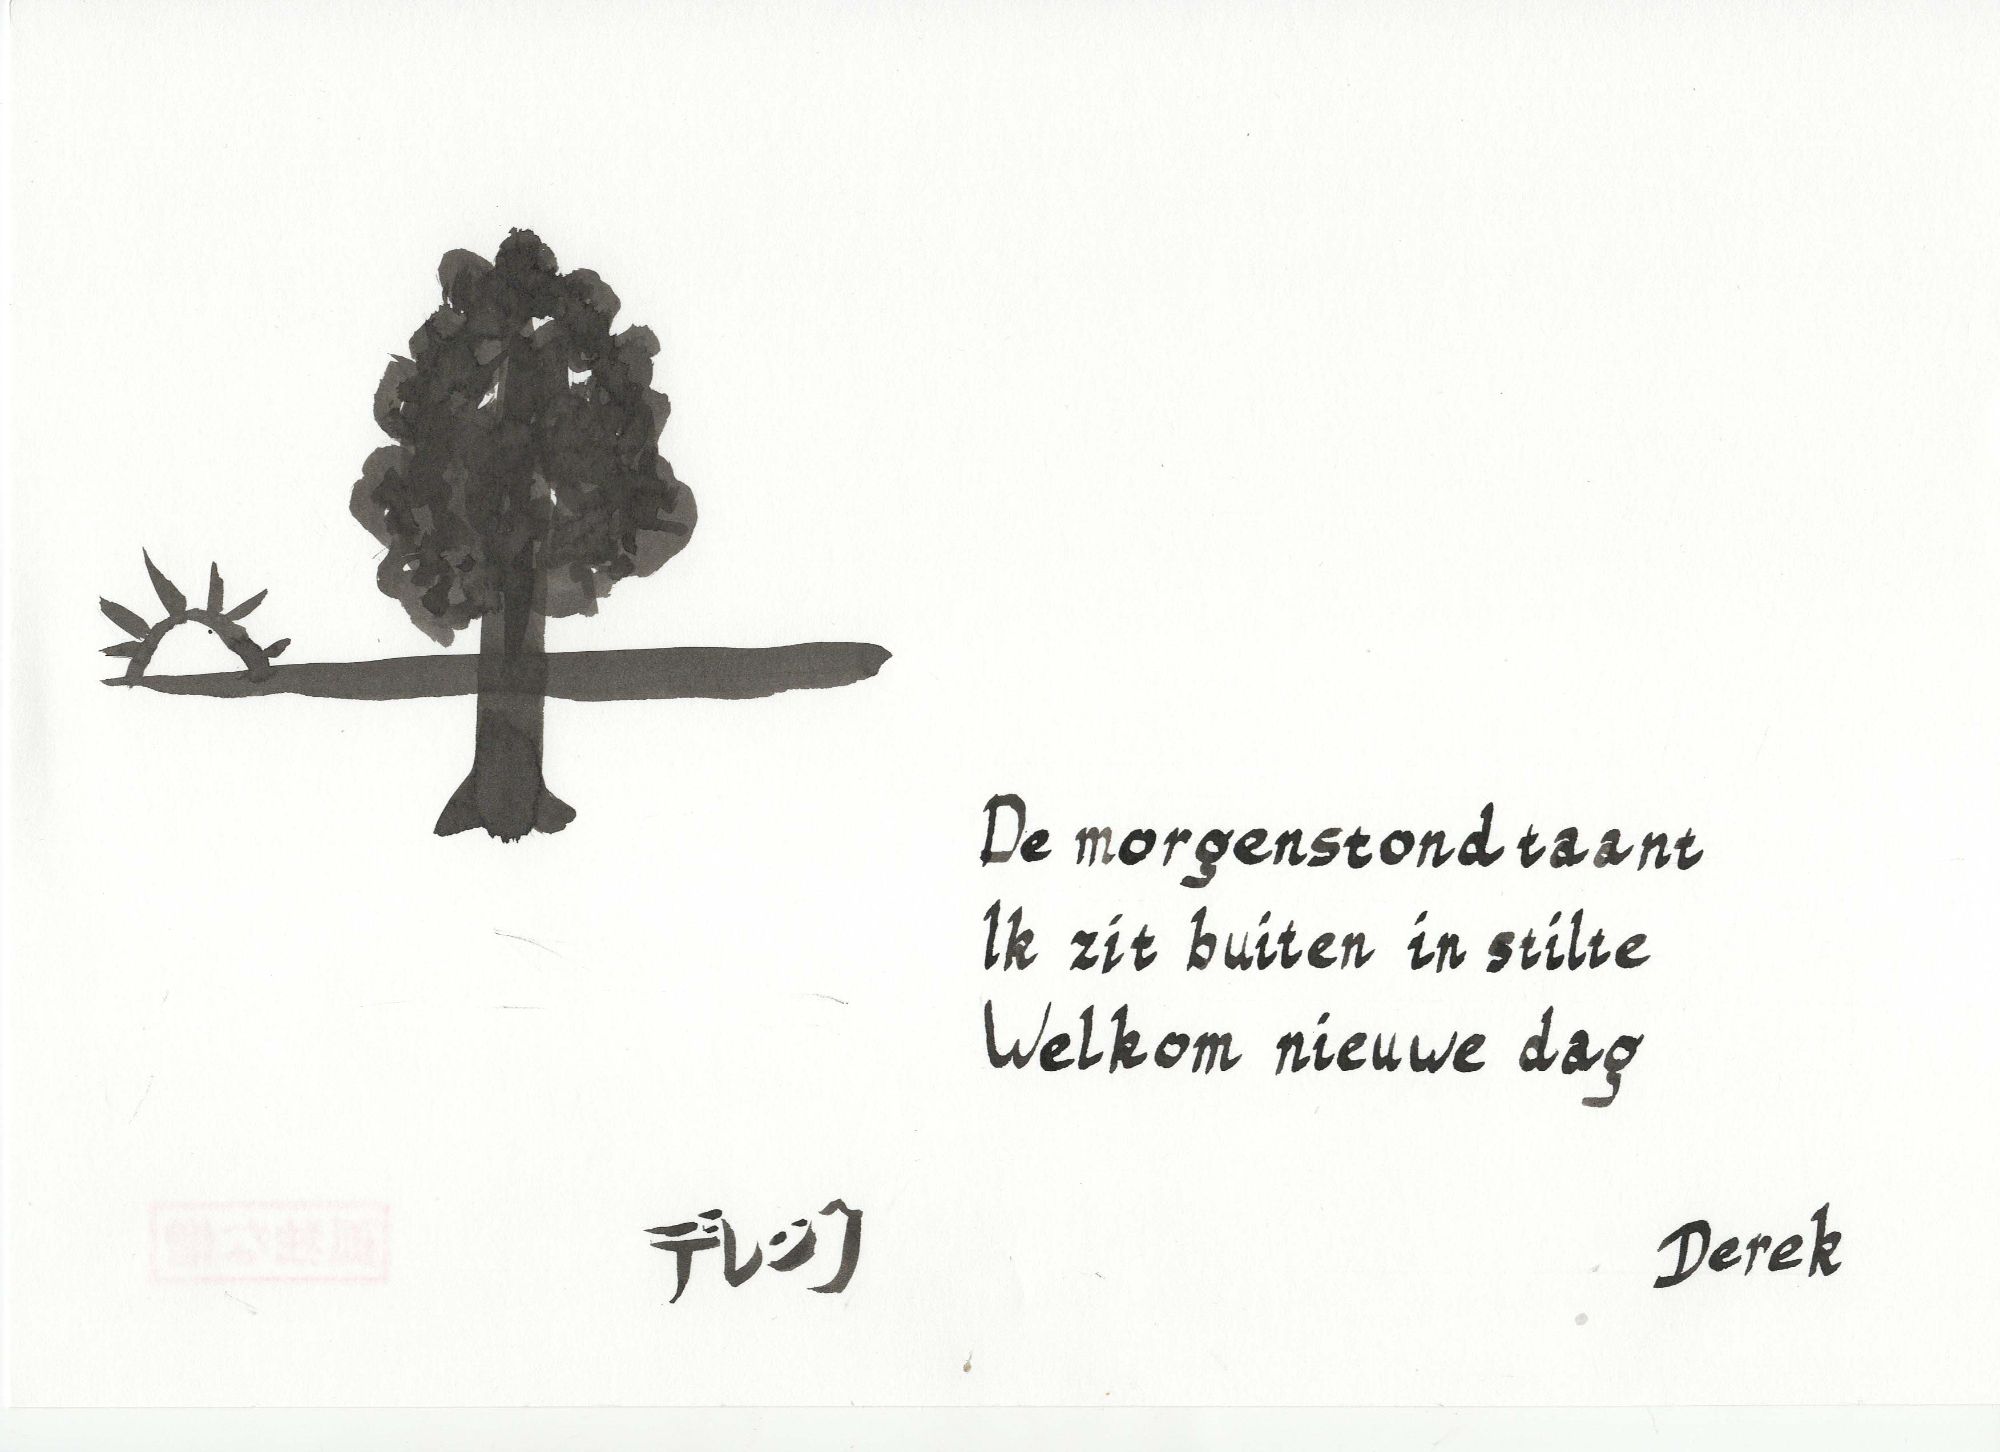 De morgenstond taant
Ik zit buiten in stilte
Welkom nieuwe dag
デレック
Derek